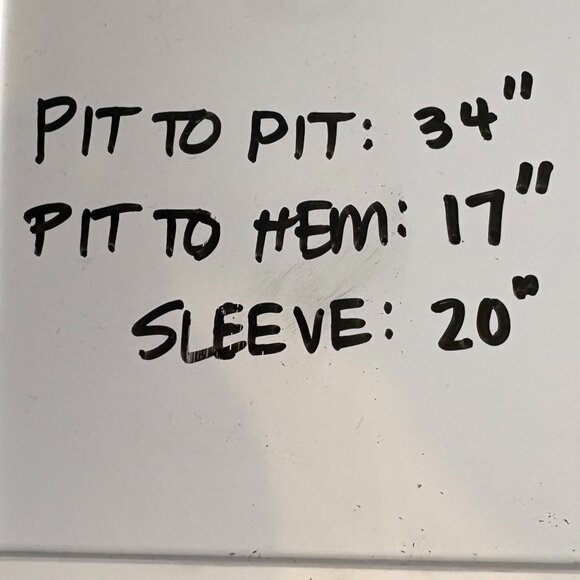 PIT TO PIT: 34"
PIT TO HEM: 17"
SLEEVE: 20"